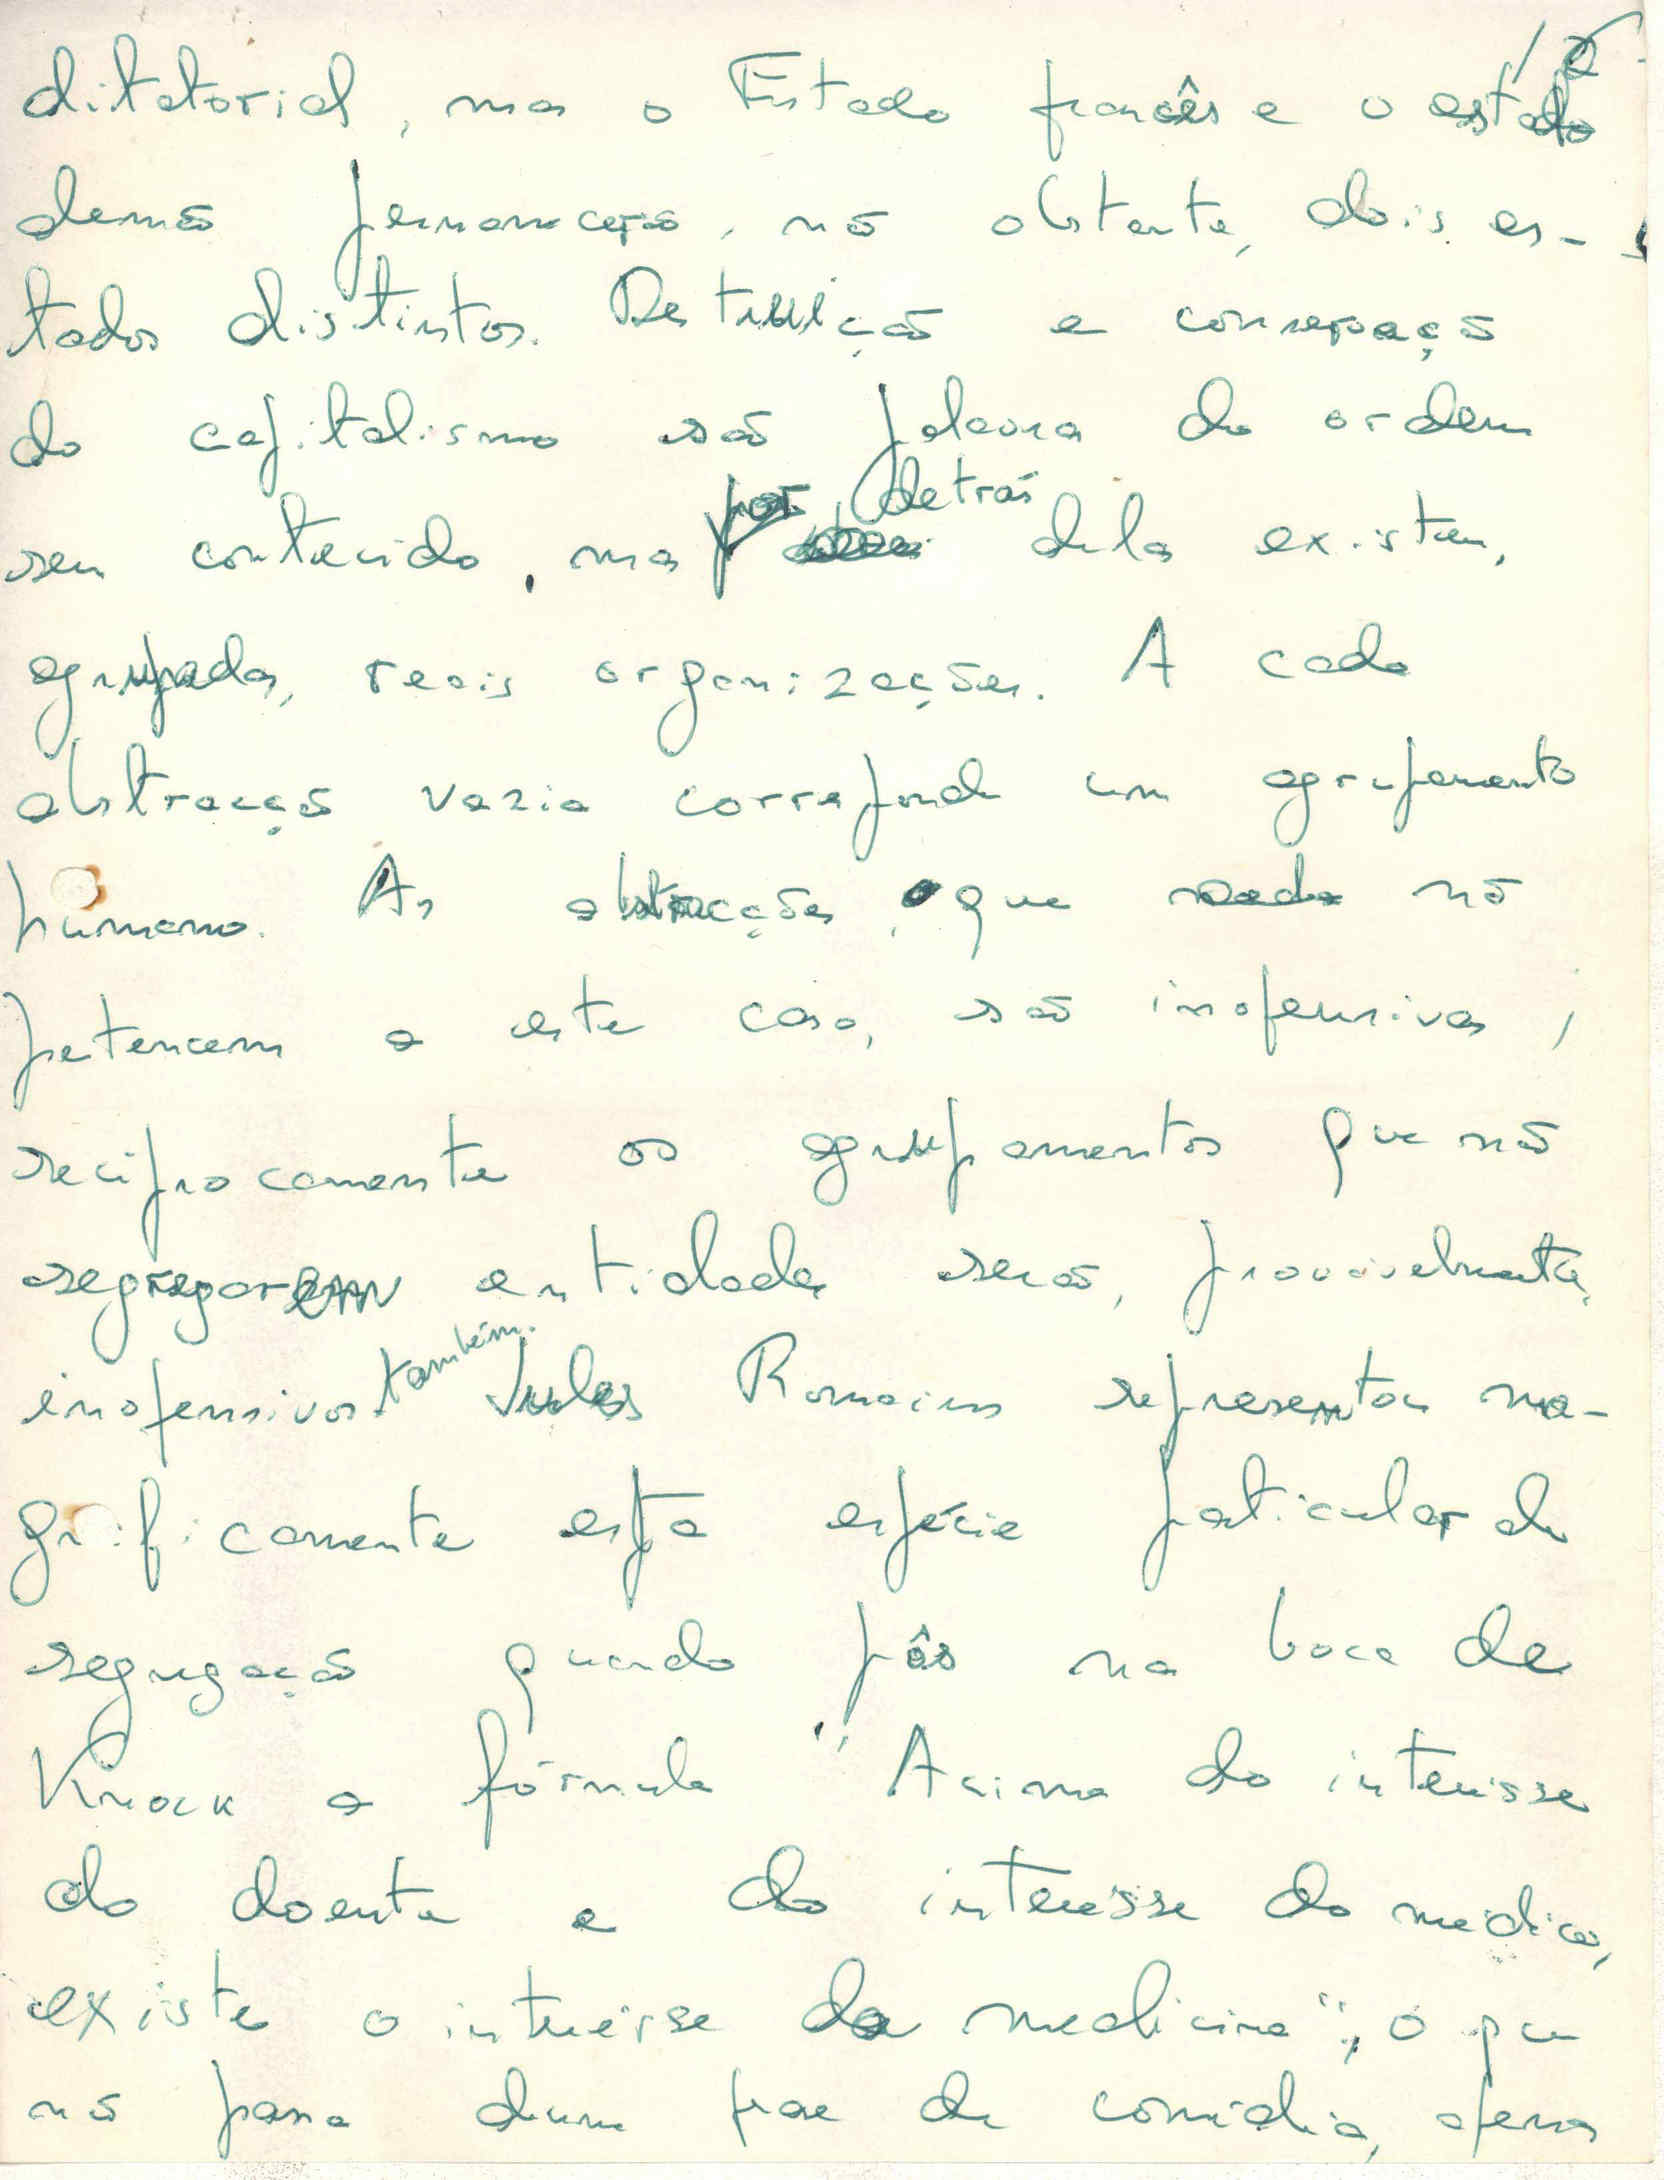 ditatorial, mas o Estado francês e o estado
alemão permanecerão, não obstante, dois es-
tados distintos. Destruição e conservação
do capitalismo são palavras de ordem
sem conteúdo, mas por detrás delas existem,
agrupadas, reais organizações. A cada
abstracção vazia corresponde um agrupamento
humano. As abstracções, que não
pertencem a este caso, são inofensivas;
reciprocamente os agrupamentos que não
segregarem entidades serão, provàvelmente,
inofensivos também. Jules Romains representou ma-
gnificamente esta espécie particular de
segregação quando pôs na boca de
Knock a fórmula "Acima do interesse
do doente e do interesse do médico,
existe o interesse da medicina"; o que
não passa duma frase de comédia, apenas